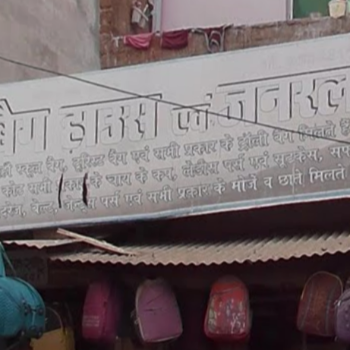 बैग हाउस एवं जनरल
स्कूल बैग, टूरिस्ट बैग एवं सभी प्रकार के झोली बैग मिलते हैं
सभी प्रकार के चाय के कप, लेडीज पर्स एवं सूटकेस,
बेल्ट, लेडीज पर्स एवं सभी प्रकार के मोजे व छाते मिलते